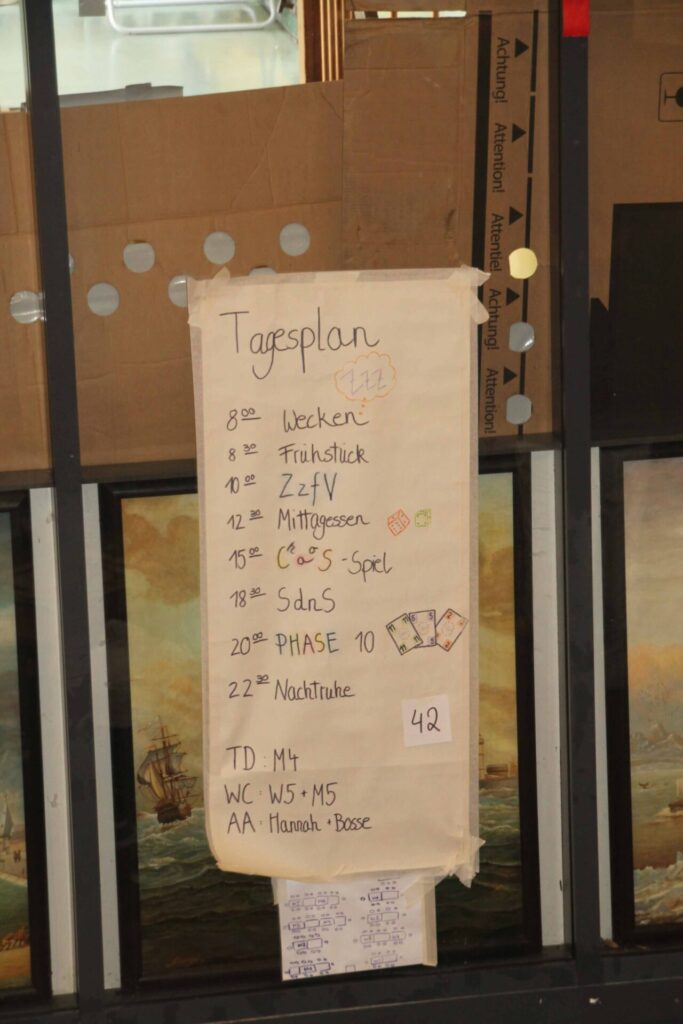 Achtung!
Attention!
Attentie!
Achtung!
Attention!
Tagesplan
ZZZ
8:00 Wecken
8:30 Frühstück
10:00 ZzfV
12:30 Mittagessen
15:00 Chaos-Spiel
18:30 SdnS
20:00 PHASE 10
22:30 Nachtruhe
42
TD: M4
WC: W5+M5
AA: Hannah + Bosse